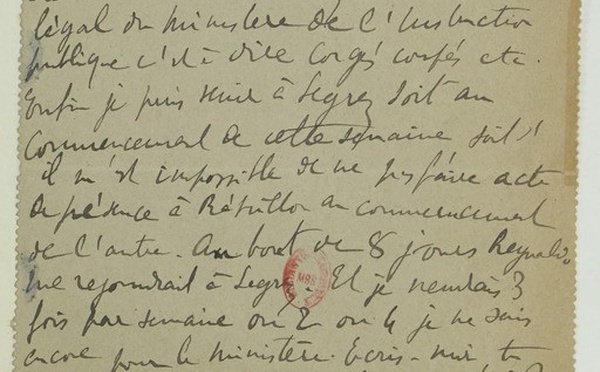 légal du ministère de l'Instruction
publique c'est à dire congés confés etc.
Enfin je puis venir à Segrez soit au
commencement de cette semaine soit s'
il m'est impossible de ne pas faire acte
de présence à Réveillon au commencement
de l'autre. Au bout de 8 jours Reynaldo
me rejoindrait à Segrez. Et je viendrais 3
fois par semaine ou 2 ou 4 je ne sais
encore pour le ministère. Ecris-moi